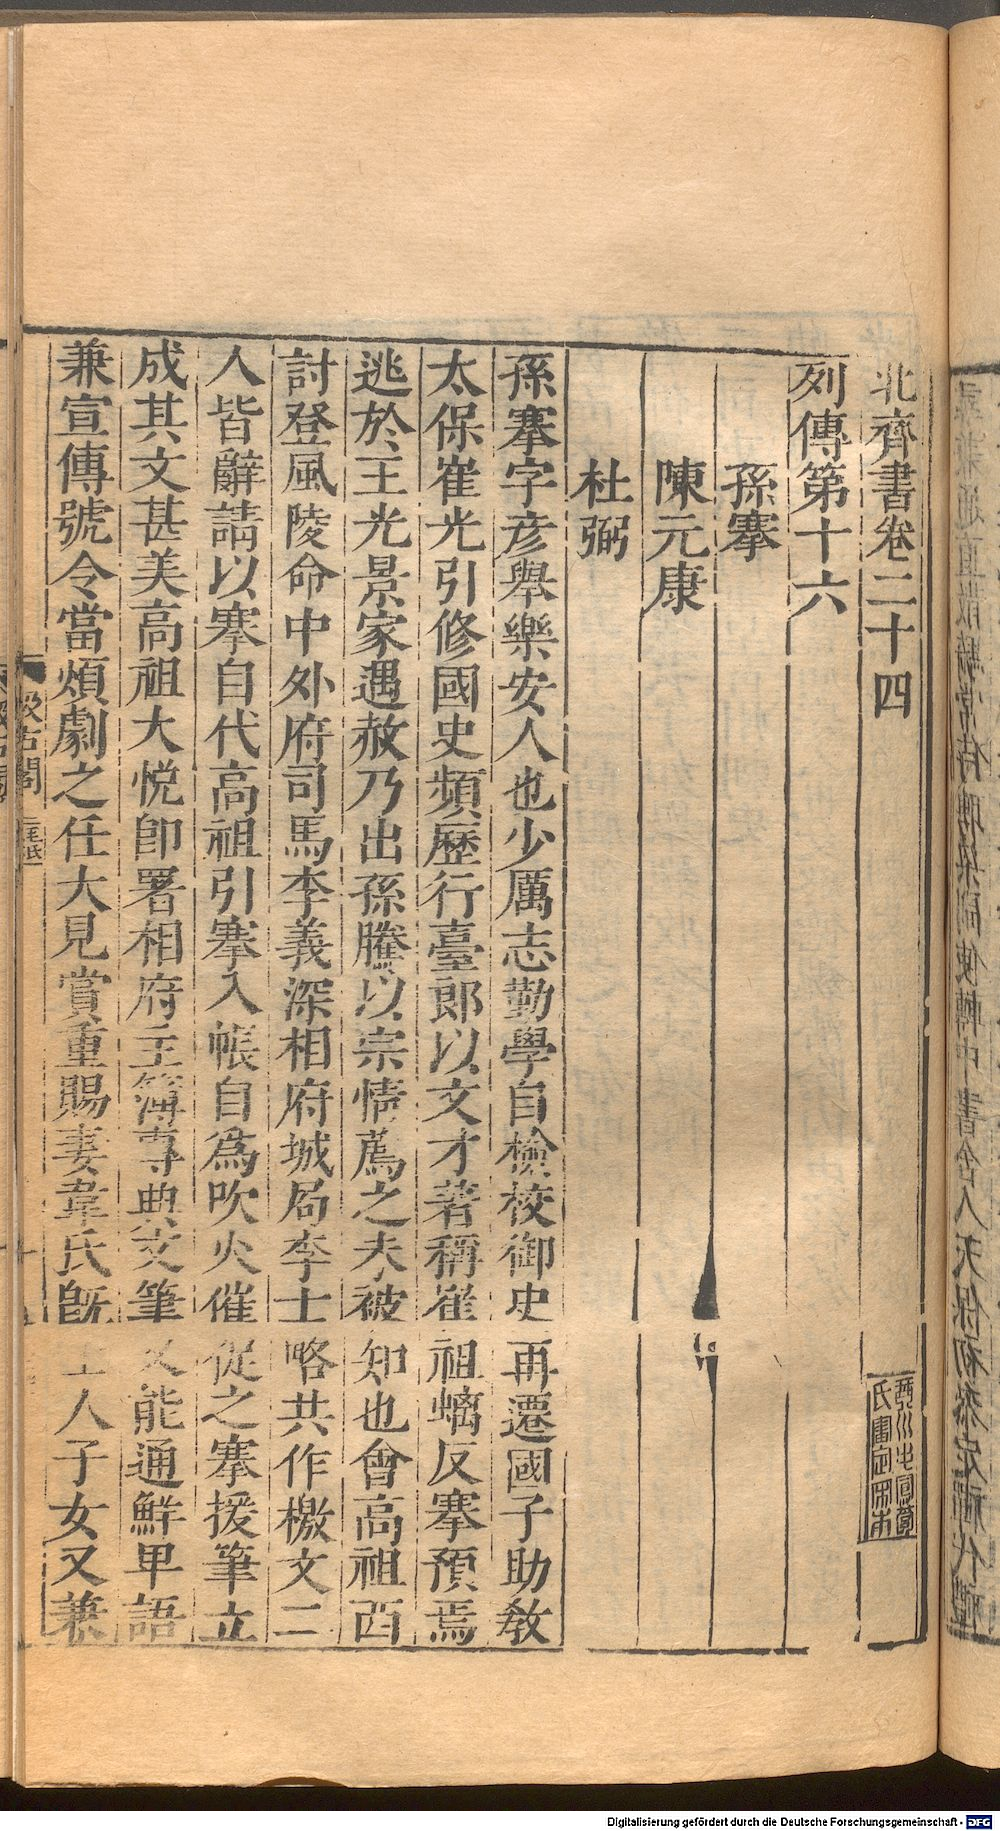 北齊書卷二十四
列傳第十六
孫搴
陳元康
杜弼
孫搴字彥舉樂安人也少厲志勤學自檢校御史再遷國子助教
太保崔光引修國史頻歷行臺郎以文才著稱崔祖螭反搴預焉
逃於王光景家遇赦乃出孫騰以宗情薦之未被知也會高祖西
討登風陵命中外府司馬李義深相府城局李士略共作檄文二
人皆辭請以搴自代高祖引搴入帳自為吹火催促之搴援筆立
成其文甚美高祖大悅卽署相府主簿專典文筆又能通鮮卑語
兼宣傳號令當煩劇之任大見賞重賜妻韋氏旣士人子女又兼
汲古閣
毛氏
Digitalisierung gefördert durch die Deutsche Forschungsgemeinschaft - DFG